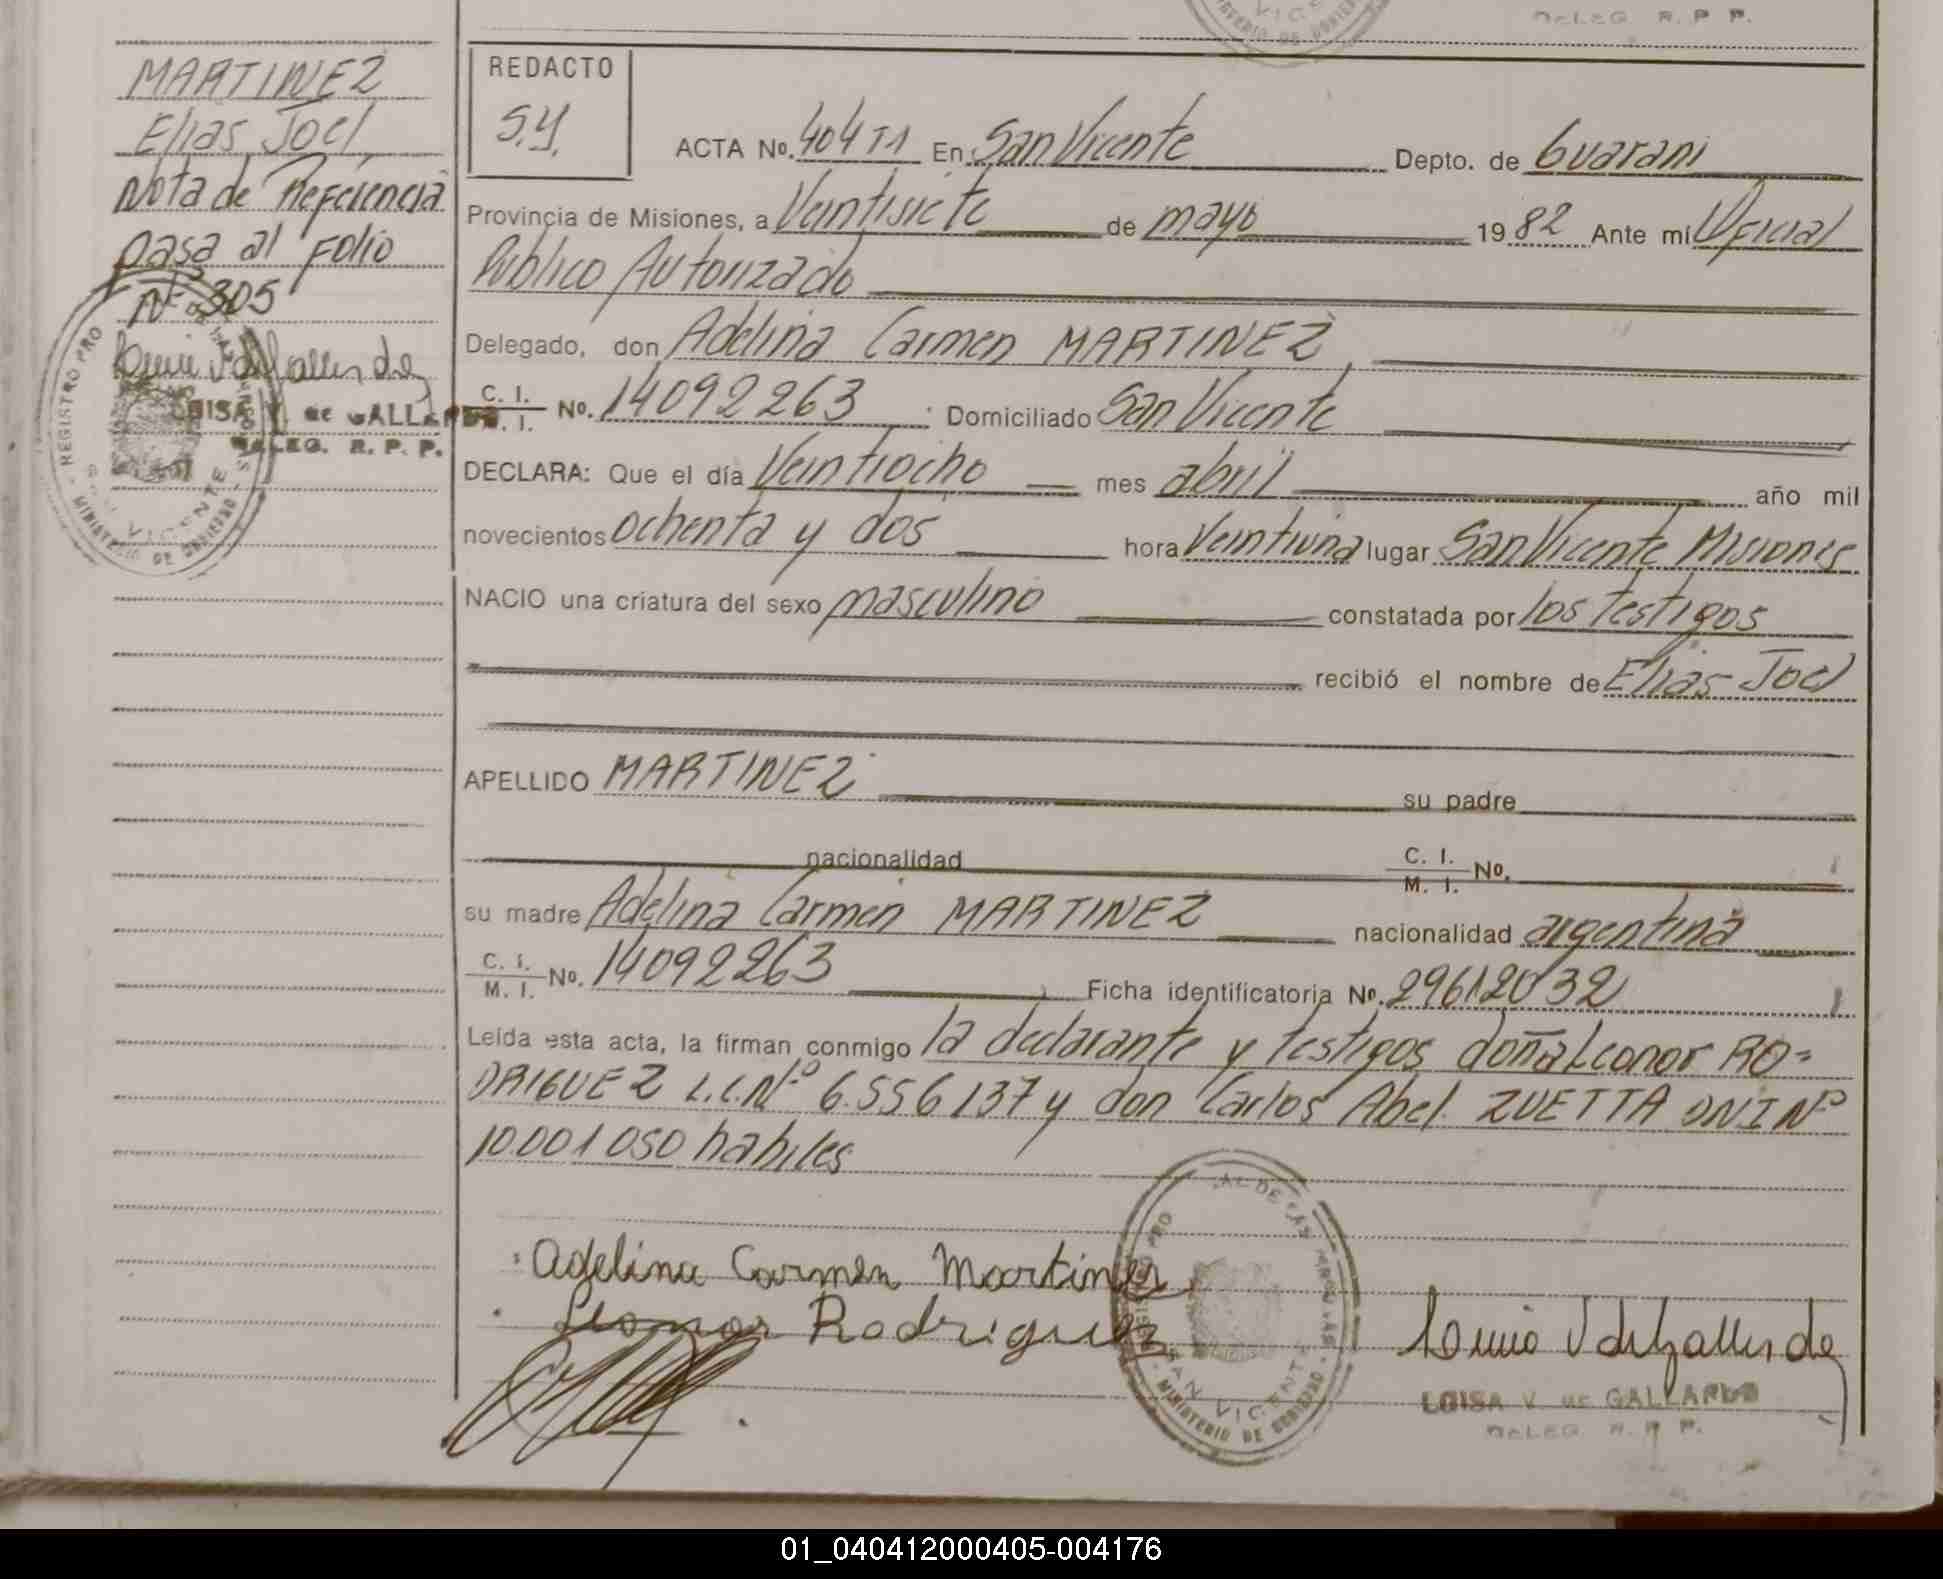 MARTINEZ
Elias Joel
Nota de Referencia
pasa al Folio
Nº 305
LUISA V. de GALLARDO
DELEG. R. P. P.
REGISTRO PRO
SAN VICENTE
MINISTERIO DE GOBIERNO
DELEG. R. P. P.
REDACTO
S.Y.
ACTA No. 404 T1 En San Vicente Depto. de Guarani
Provincia de Misiones, a Veintisiete de mayo 1982 Ante mí Oficial
Público Autorizado
Delegado, don Adelina Carmen MARTINEZ
C. I. M. I. No. 14092263 Domiciliado San Vicente
DECLARA: Que el día Veintiocho mes abril año mil
novecientos ochenta y dos hora Veintiuna lugar San Vicente Misiones
NACIO una criatura del sexo masculino constatada por los testigos
recibió el nombre de Elias Joel
APELLIDO MARTINEZ su padre
nacionalidad C. I. M. I. No.
su madre Adelina Carmen MARTINEZ nacionalidad argentina
C. I. M. I. No. 14092263 Ficha identificatoria No. 29612032
Leída esta acta, la firman conmigo la declarante y testigos doña Leonor RO=
DRIGUEZ L.C.Nº 6.556137 y don Carlos Abel ZUETTA DNI Nº
10.001050 habiles
Adelina Carmen Martinez
Leonor Rodriguez
SAN VICENTE
MINISTERIO DE GOBIERNO
LUISA V. de GALLARDO
DELEG. R. P. P.
01_040412000405-004176